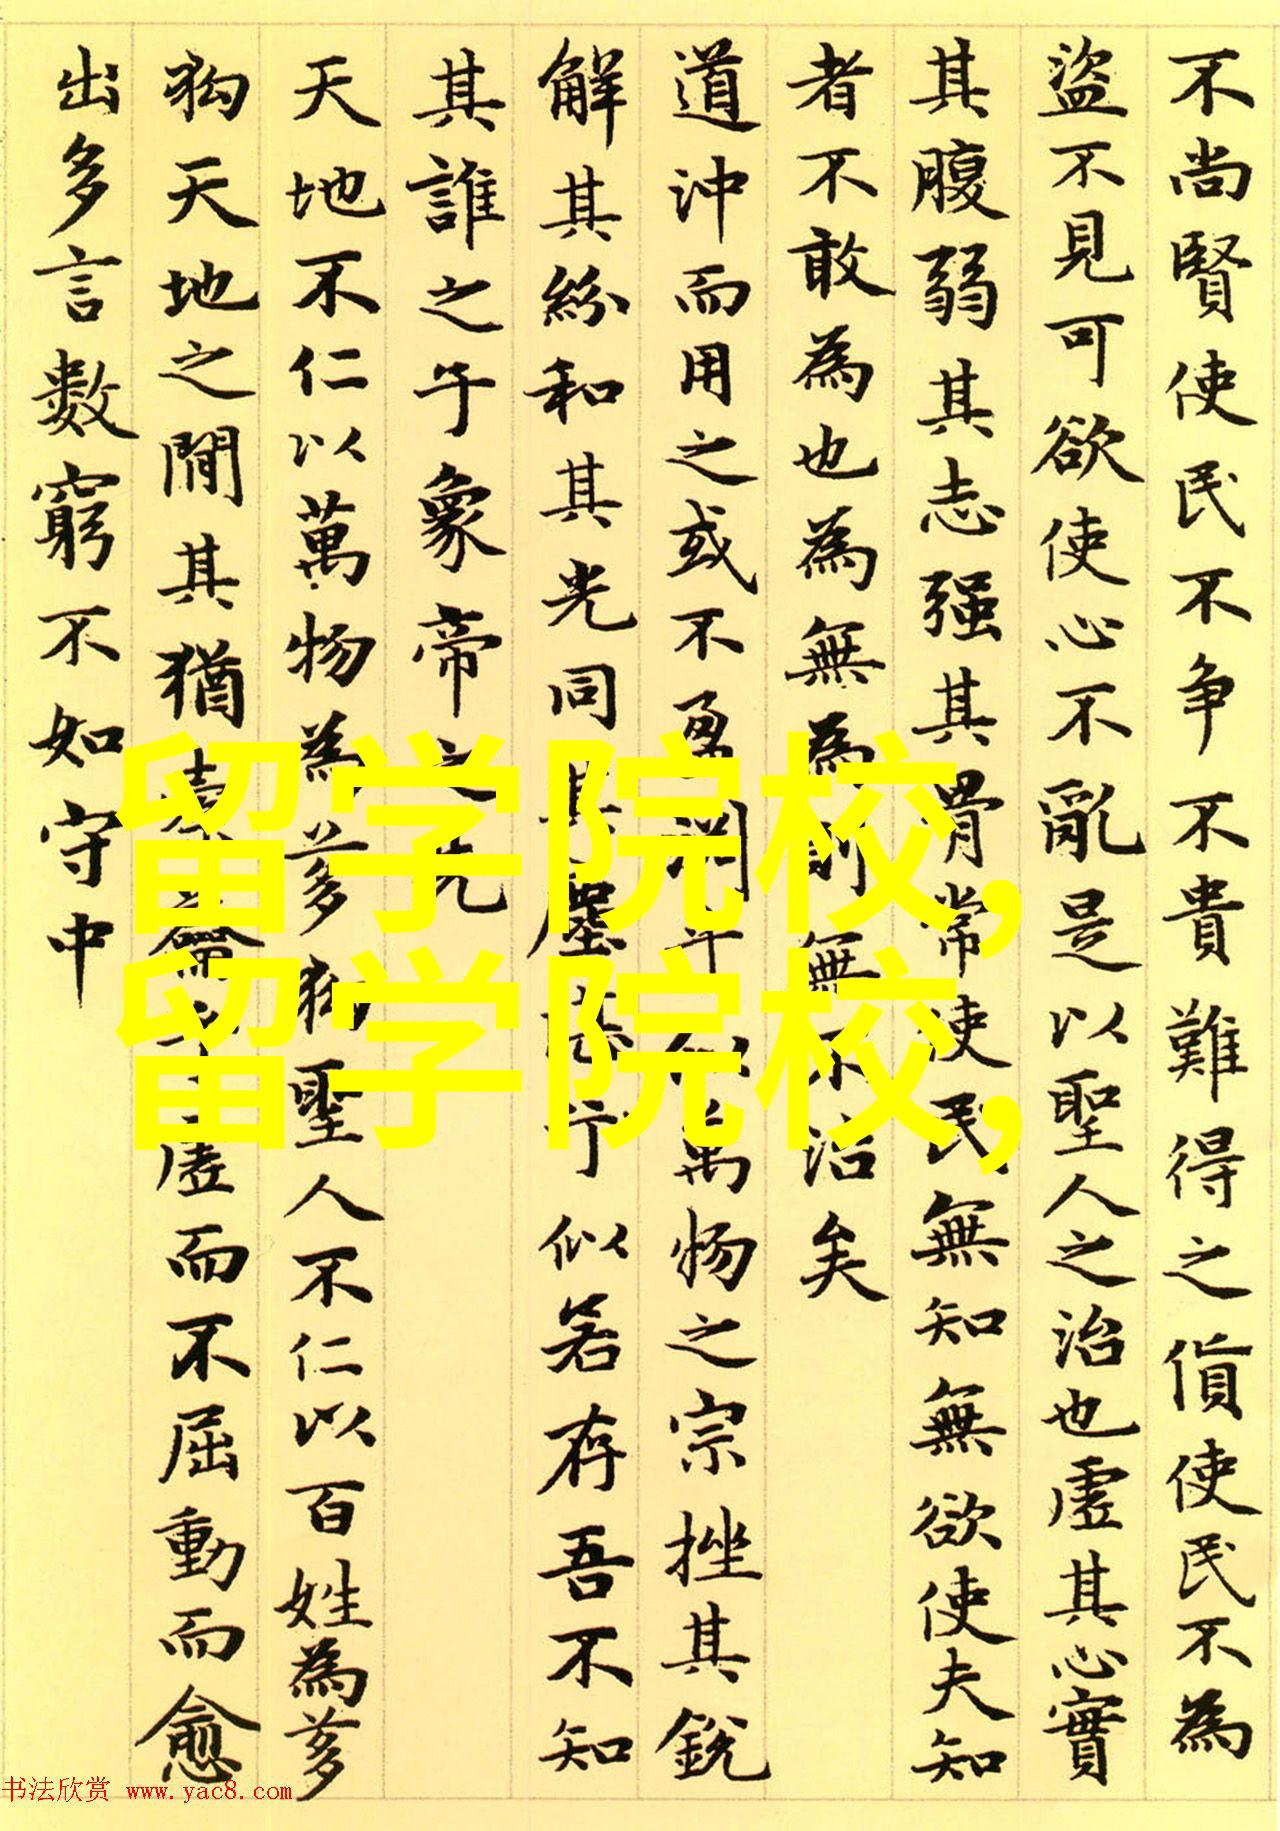 不尚賢使民不争不貴難得之貨使民不為
盜不見可欲使心不亂是以聖人之治也虛其心實
其腹弱其志强其骨常使民無知無欲使夫知
者不敢為也為無為則無不治矣
道沖而用之或不盈淵乎似萬物之宗挫其銳
解其紛和其光同其塵湛兮似若存吾不知
其誰之子象帝之先
天地不仁以萬物為芻狗聖人不仁以百姓為芻
狗天地之間其猶橐籥乎虛而不屈動而愈
出多言數窮不如守中
留学院校,
留学院校,
书法欣赏 www.yac8.com